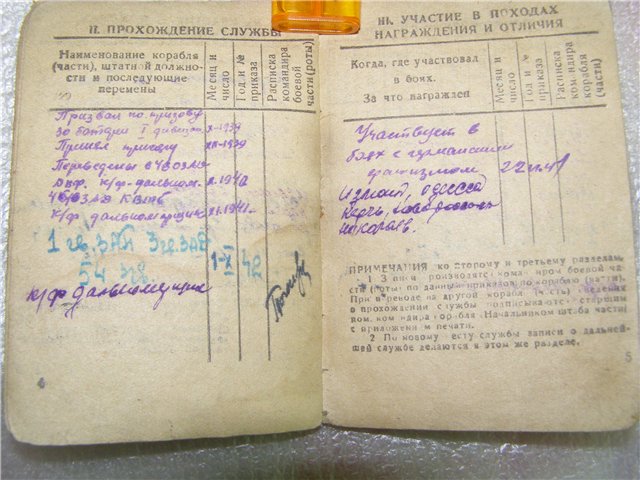 II. ПРОХОЖДЕНИЕ СЛУЖБЫ
Наименование корабля
(части), штатной должно-
сти и последующие
перемены
Месяц и
число
Год и №
приказа
Расписка
командира
боевой
части (роты)
Призван по призыву
30 батарея I дивизон X-1939
Принял присягу XII-1939
Переведены в ЧВОЗАД
к/ф-дальном. X. 1940
К/ф дальномерщик XI.1941.
1 гв. ЗАП 3 гв. ЗАД
1-X 42
К/ф дальномерщик
4
III. УЧАСТИЕ В ПОХОДАХ
НАГРАЖДЕНИЯ И ОТЛИЧИЯ
Когда, где участвовал
в боях.
За что награжден
Месяц и
число
Год и №
приказа
Расписка
командира
корабля
(части)
Участвует в
боях с германским
фашизмом 22
Измаил, Одесса
Керчь,
Николаев.
ПРИМЕЧАНИЯ ко второму и третьему разделам.
1 Записи производятся командиром боевой ча-
сти (роты) по данным приказов по кораблю (части).
При переводе на другой корабль (часть) сведения
о прохождении службы подписываются старшим
пом. командира корабля. Начальником штаба части
с приложением печати.
2 По новому месту службы записи о дальней-
шей службе делаются в этом же разделе.
5